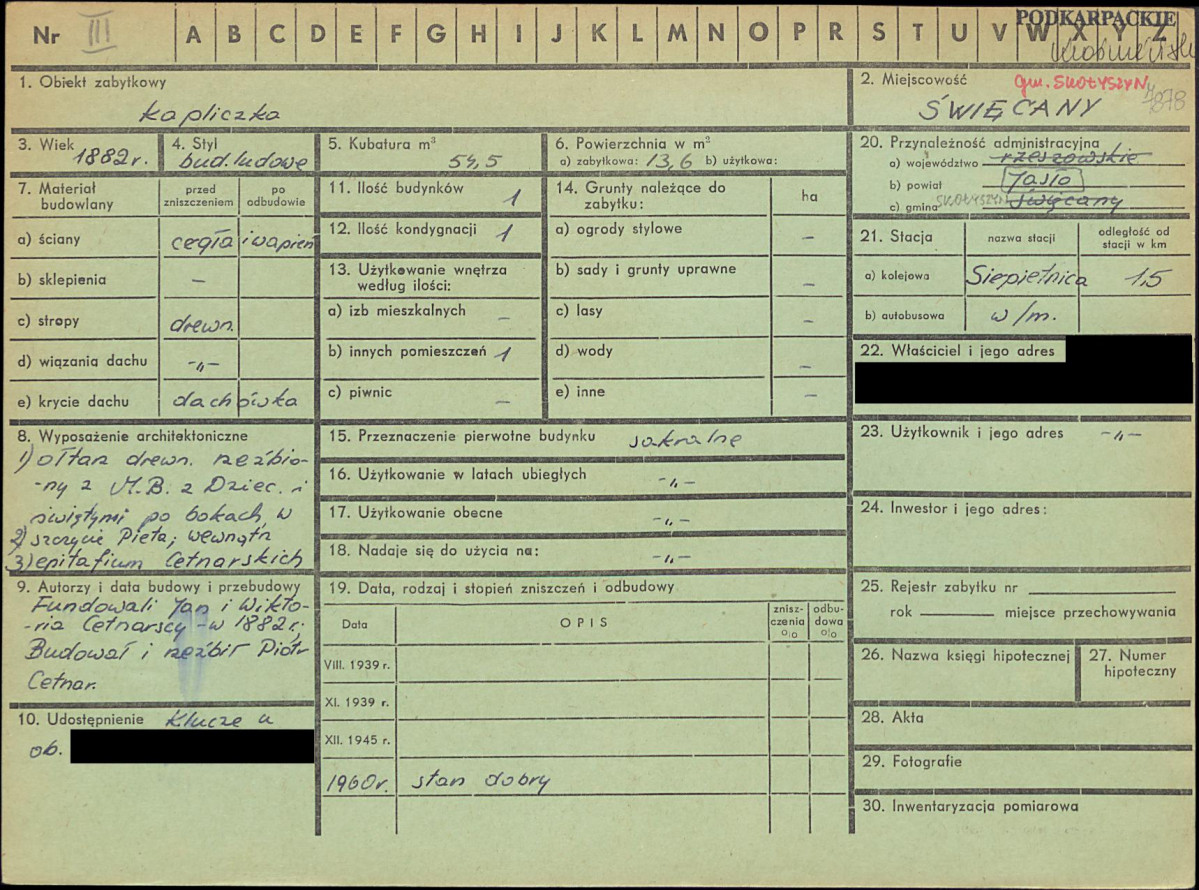 Nr III A B C D E F G H I J K L M N O P R S T U V W X Y Z
PODKARPACKIE
1. Obiekt zabytkowy
kapliczka
2. Miejscowość gm. SKOŁYSZYN
ŚWIĘCANY 7878
3. Wiek 1882 r.
4. Styl bud. ludowe
5. Kubatura m³ 54,5
6. Powierzchnia w m²
a) zabytkowa: 13,6 b) użytkowa:
20. Przynależność administracyjna
a) województwo rzeszowskie
b) powiat Jasło
c) gmina SKOŁYSZYN Święcany
7. Materiał budowlany
przed zniszczeniem
po odbudowie
a) ściany cegła i wapień
b) sklepienia –
c) stropy drewn.
d) wiązania dachu -„-
e) krycie dachu dachówka
11. Ilość budynków 1
12. Ilość kondygnacji 1
13. Użytkowanie wnętrza
według ilości:
a) izb mieszkalnych –
b) innych pomieszczeń 1
c) piwnic –
14. Grunty należące do
zabytku:
ha
a) ogrody stylowe –
b) sady i grunty uprawne –
c) lasy –
d) wody –
e) inne –
21. Stacja
nazwa stacji
odległość od
stacji w km
a) kolejowa Siepietnica 1,5
b) autobusowa w/m.
22. Właściciel i jego adres
8. Wyposażenie architektoniczne
1) ołtarz drewn. rzeźbio-
-ny z M.B. z Dziec. i
świętymi po bokach, w
2) szczycie Pieta; wewnątrz
3) epitafium Cetnarskich
15. Przeznaczenie pierwotne budynku sakralne
16. Użytkowanie w latach ubiegłych -„-
17. Użytkowanie obecne -„-
18. Nadaje się do użycia na: -„-
23. Użytkownik i jego adres -„-
24. Inwestor i jego adres:
9. Autorzy i data budowy i przebudowy
Fundowali Jan i Wikto-
-ria Cetnarscy - w 1882 r.
Budował i rzeźbił Piotr
Cetnar.
10. Udostępnienie Klucze u
ob.
19. Data, rodzaj i stopień zniszczeń i odbudowy
Data
OPIS
znisz-
czenia
o|o
odbu-
dowa
o|o
VIII. 1939 r.
XI. 1939 r.
XII. 1945 r.
1960 r. stan dobry
25. Rejestr zabytku nr
rok miejsce przechowywania
26. Nazwa księgi hipotecznej
27. Numer
hipoteczny
28. Akta
29. Fotografie
30. Inwentaryzacja pomiarowa